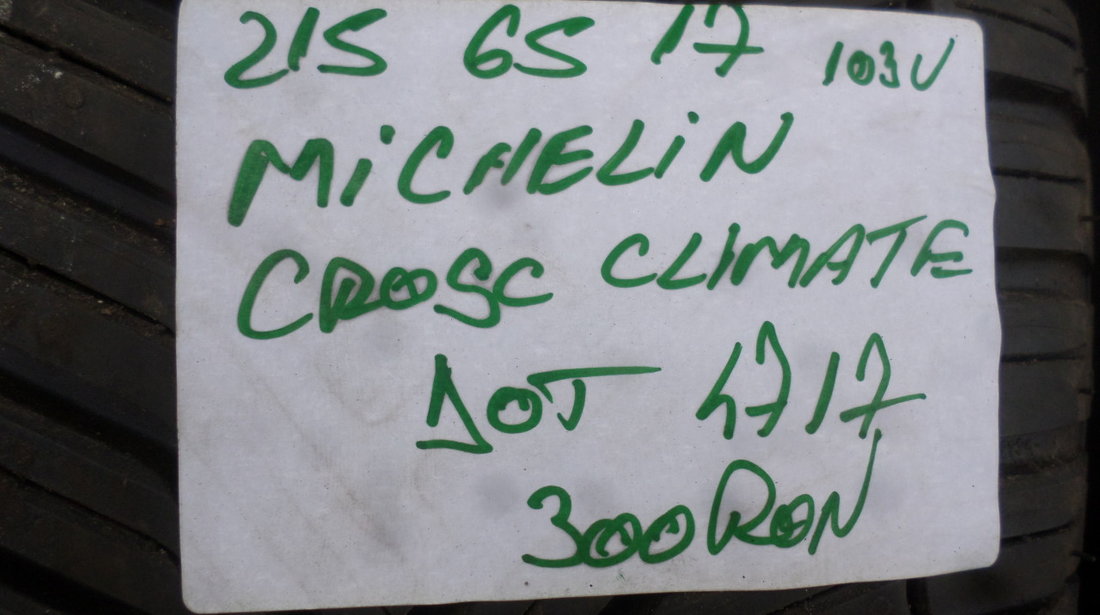 215 65 17 103V
MiCHELiN
CROSC CLIMATE
DOT 4717
300 RON